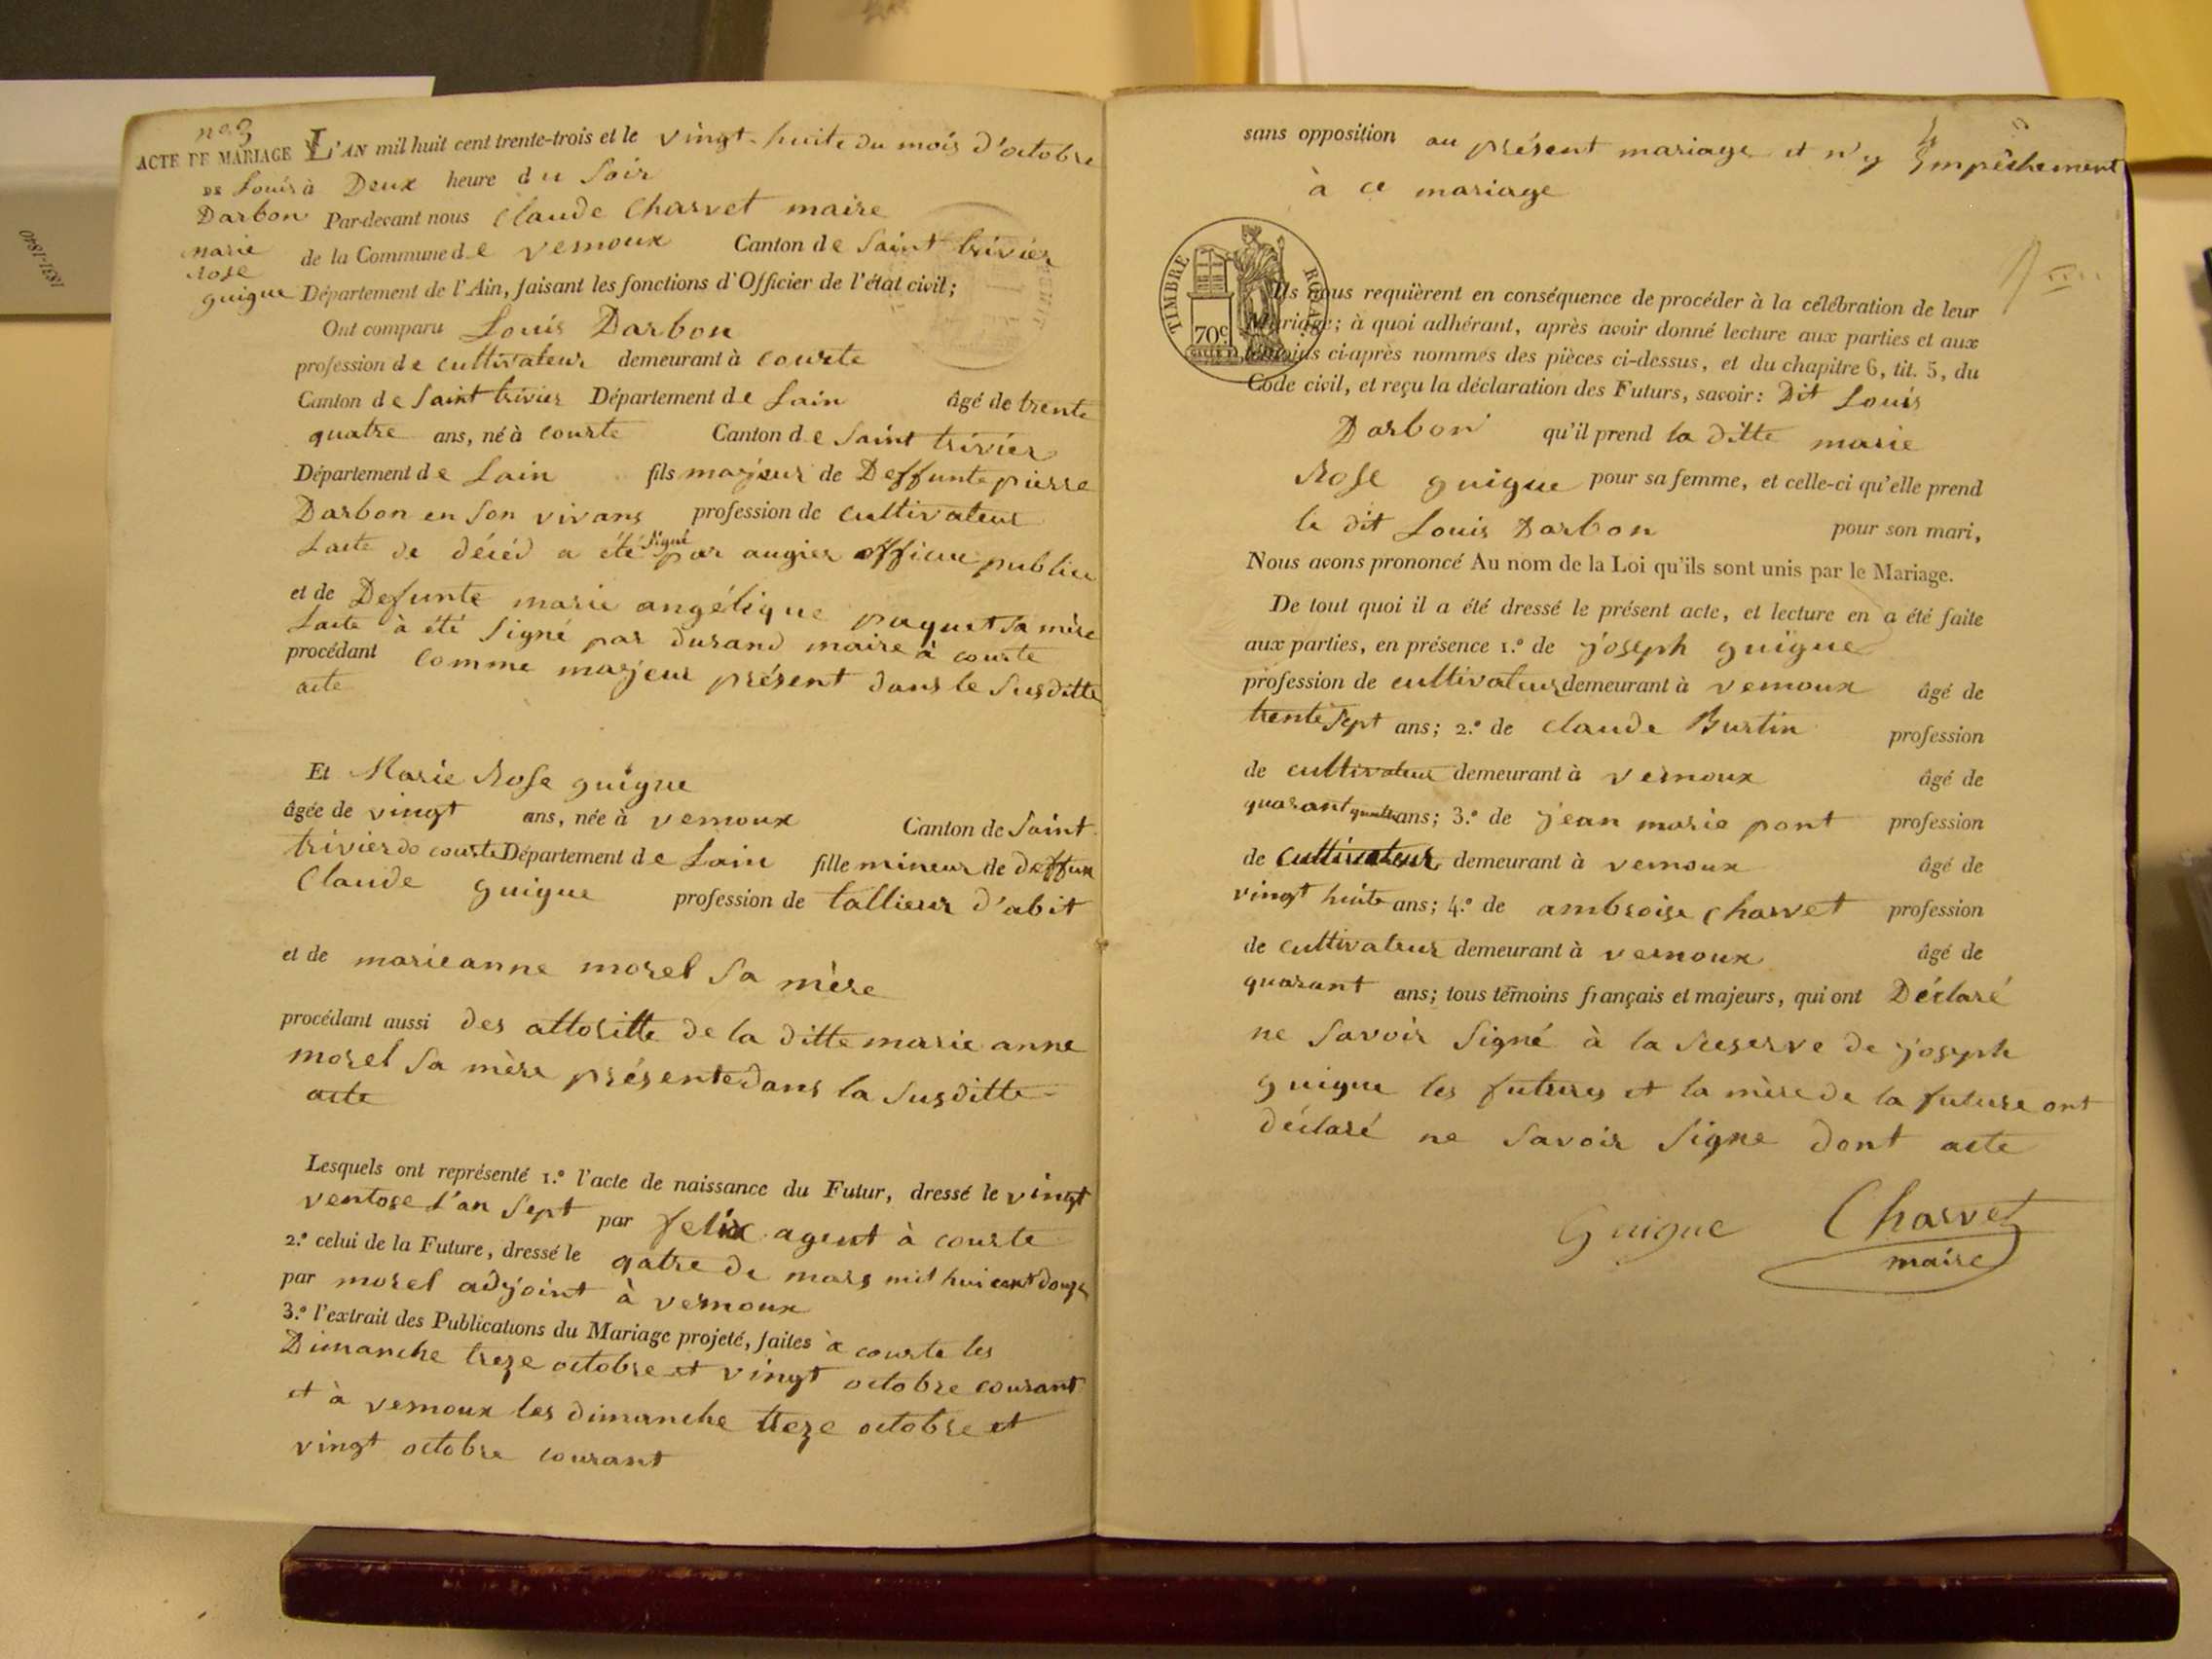 1831-1840
nº 3
ACTE DE MARIAGE
DE Louis
Darbon
marie
rose
guigue
L'AN mil huit cent trente-trois et le vingt-huite du mois d'octobre
à Deux heure du Soir
Par-devant nous Claude Charvet maire
de la Commune de vernoux Canton de Saint trivier
Département de l'Ain, faisant les fonctions d'Officier de l'état civil;
Ont comparu Louis Darbon
profession de cultivateur demeurant à courte
Canton de Saint trivier Département de Lain âgé de trente
quatre ans, né à courte Canton de Saint trivier
Département de Lain fils majeur de Deffunte pierre
Darbon en Son vivans profession de cultivateur
Lacte de décéd a été signé par augier officier publice
et de Defunte marie angélique puguet Sa mère
Lacte à été Signé par Durand maire à courte
procédant comme majeur présent dans le Susditte
acte
Et Marie Rose guigue
âgée de vingt ans, née à vernoux Canton de Saint
trivier de courte Département de Lain fille mineur de deffun
Claude guigue profession de tallieur d'abit
et de marieanne morel Sa mère
procédant aussi des attoritte de la ditte marie anne
morel Sa mère présente dans la Susditte
acte
Lesquels ont représenté 1.º l'acte de naissance du Futur, dressé le vingt
ventose l'an Sept par felix agent à courte
2.º celui de la Future, dressé le qatre de mars mil hui cent douze
par morel adjoint à vernoux
3.º l'extrait des Publications du Mariage projeté, faites à courte les
Dimanche treze octobre et vingt octobre courant
et à vernoux les dimanche treze octobre et
vingt octobre courant
sans opposition au présent mariage et n'y Empêchement
à ce mariage
TIMBRE ROYAL
70c
Ils nous requièrent en conséquence de procéder à la célébration de leur
Mariage; à quoi adhérant, après avoir donné lecture aux parties et aux
témoins ci-après nommés des pièces ci-dessus, et du chapitre 6, tit. 5, du
Code civil, et reçu la déclaration des Futurs, savoir: Dit Louis
Darbon qu'il prend la ditte marie
Rose guigue pour sa femme, et celle-ci qu'elle prend
le dit Louis Darbon pour son mari,
Nous avons prononcé Au nom de la Loi qu'ils sont unis par le Mariage.
De tout quoi il a été dressé le présent acte, et lecture en a été faite
aux parties, en présence 1.º de joseph guigue
profession de cultivateur demeurant à vernoux âgé de
trente Sept ans; 2.º de Claude Burtin profession
de cultivateur demeurant à vernoux âgé de
quarant quatre ans; 3.º de jean marie pont profession
de cultivateur demeurant à vernoux âgé de
vingt huite ans; 4.º de ambroise Charvet profession
de cultivateur demeurant à vernoux âgé de
quarant ans; tous témoins français et majeurs, qui ont Déclaré
ne Savoir Signé à la Reserve de joseph
guigue les futurs et la mère de la future ont
déclaré ne Savoir Signe dont acte
Guigue Charvet
maire